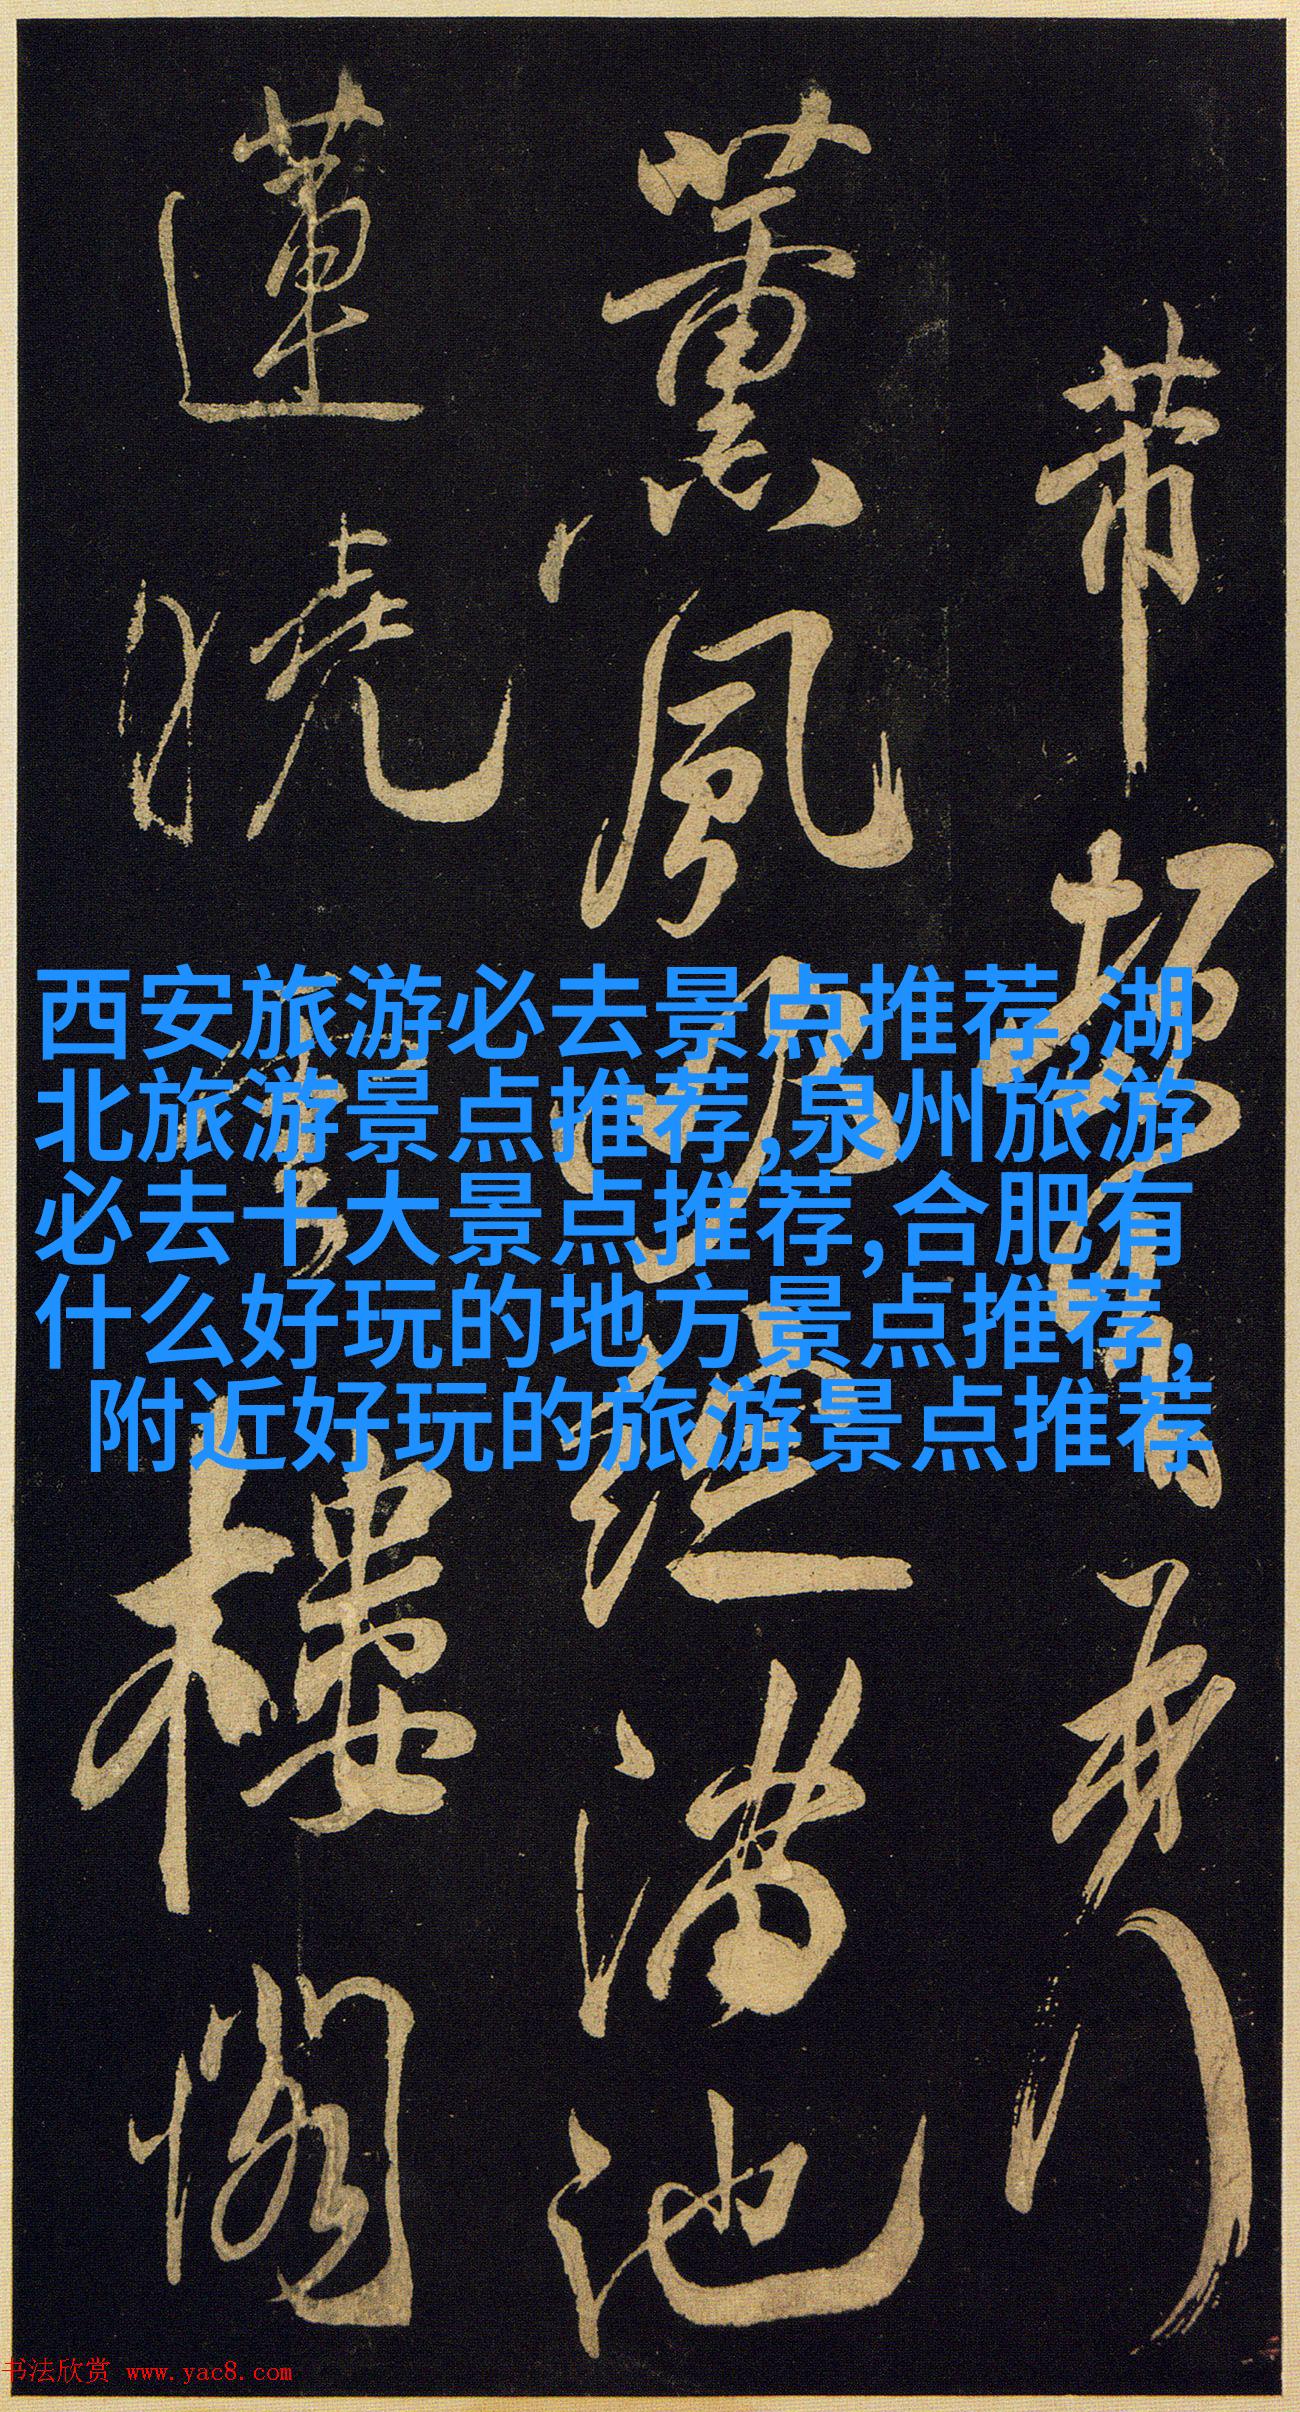 芾
薰風滿池
蓮曉樓閣
西安旅游必去景点推荐,湖
北旅游景点推荐,泉州旅游
必去十大景点推荐,合肥有
什么好玩的地方景点推荐,
附近好玩的旅游景点推荐
书法欣赏 www.yac8.com